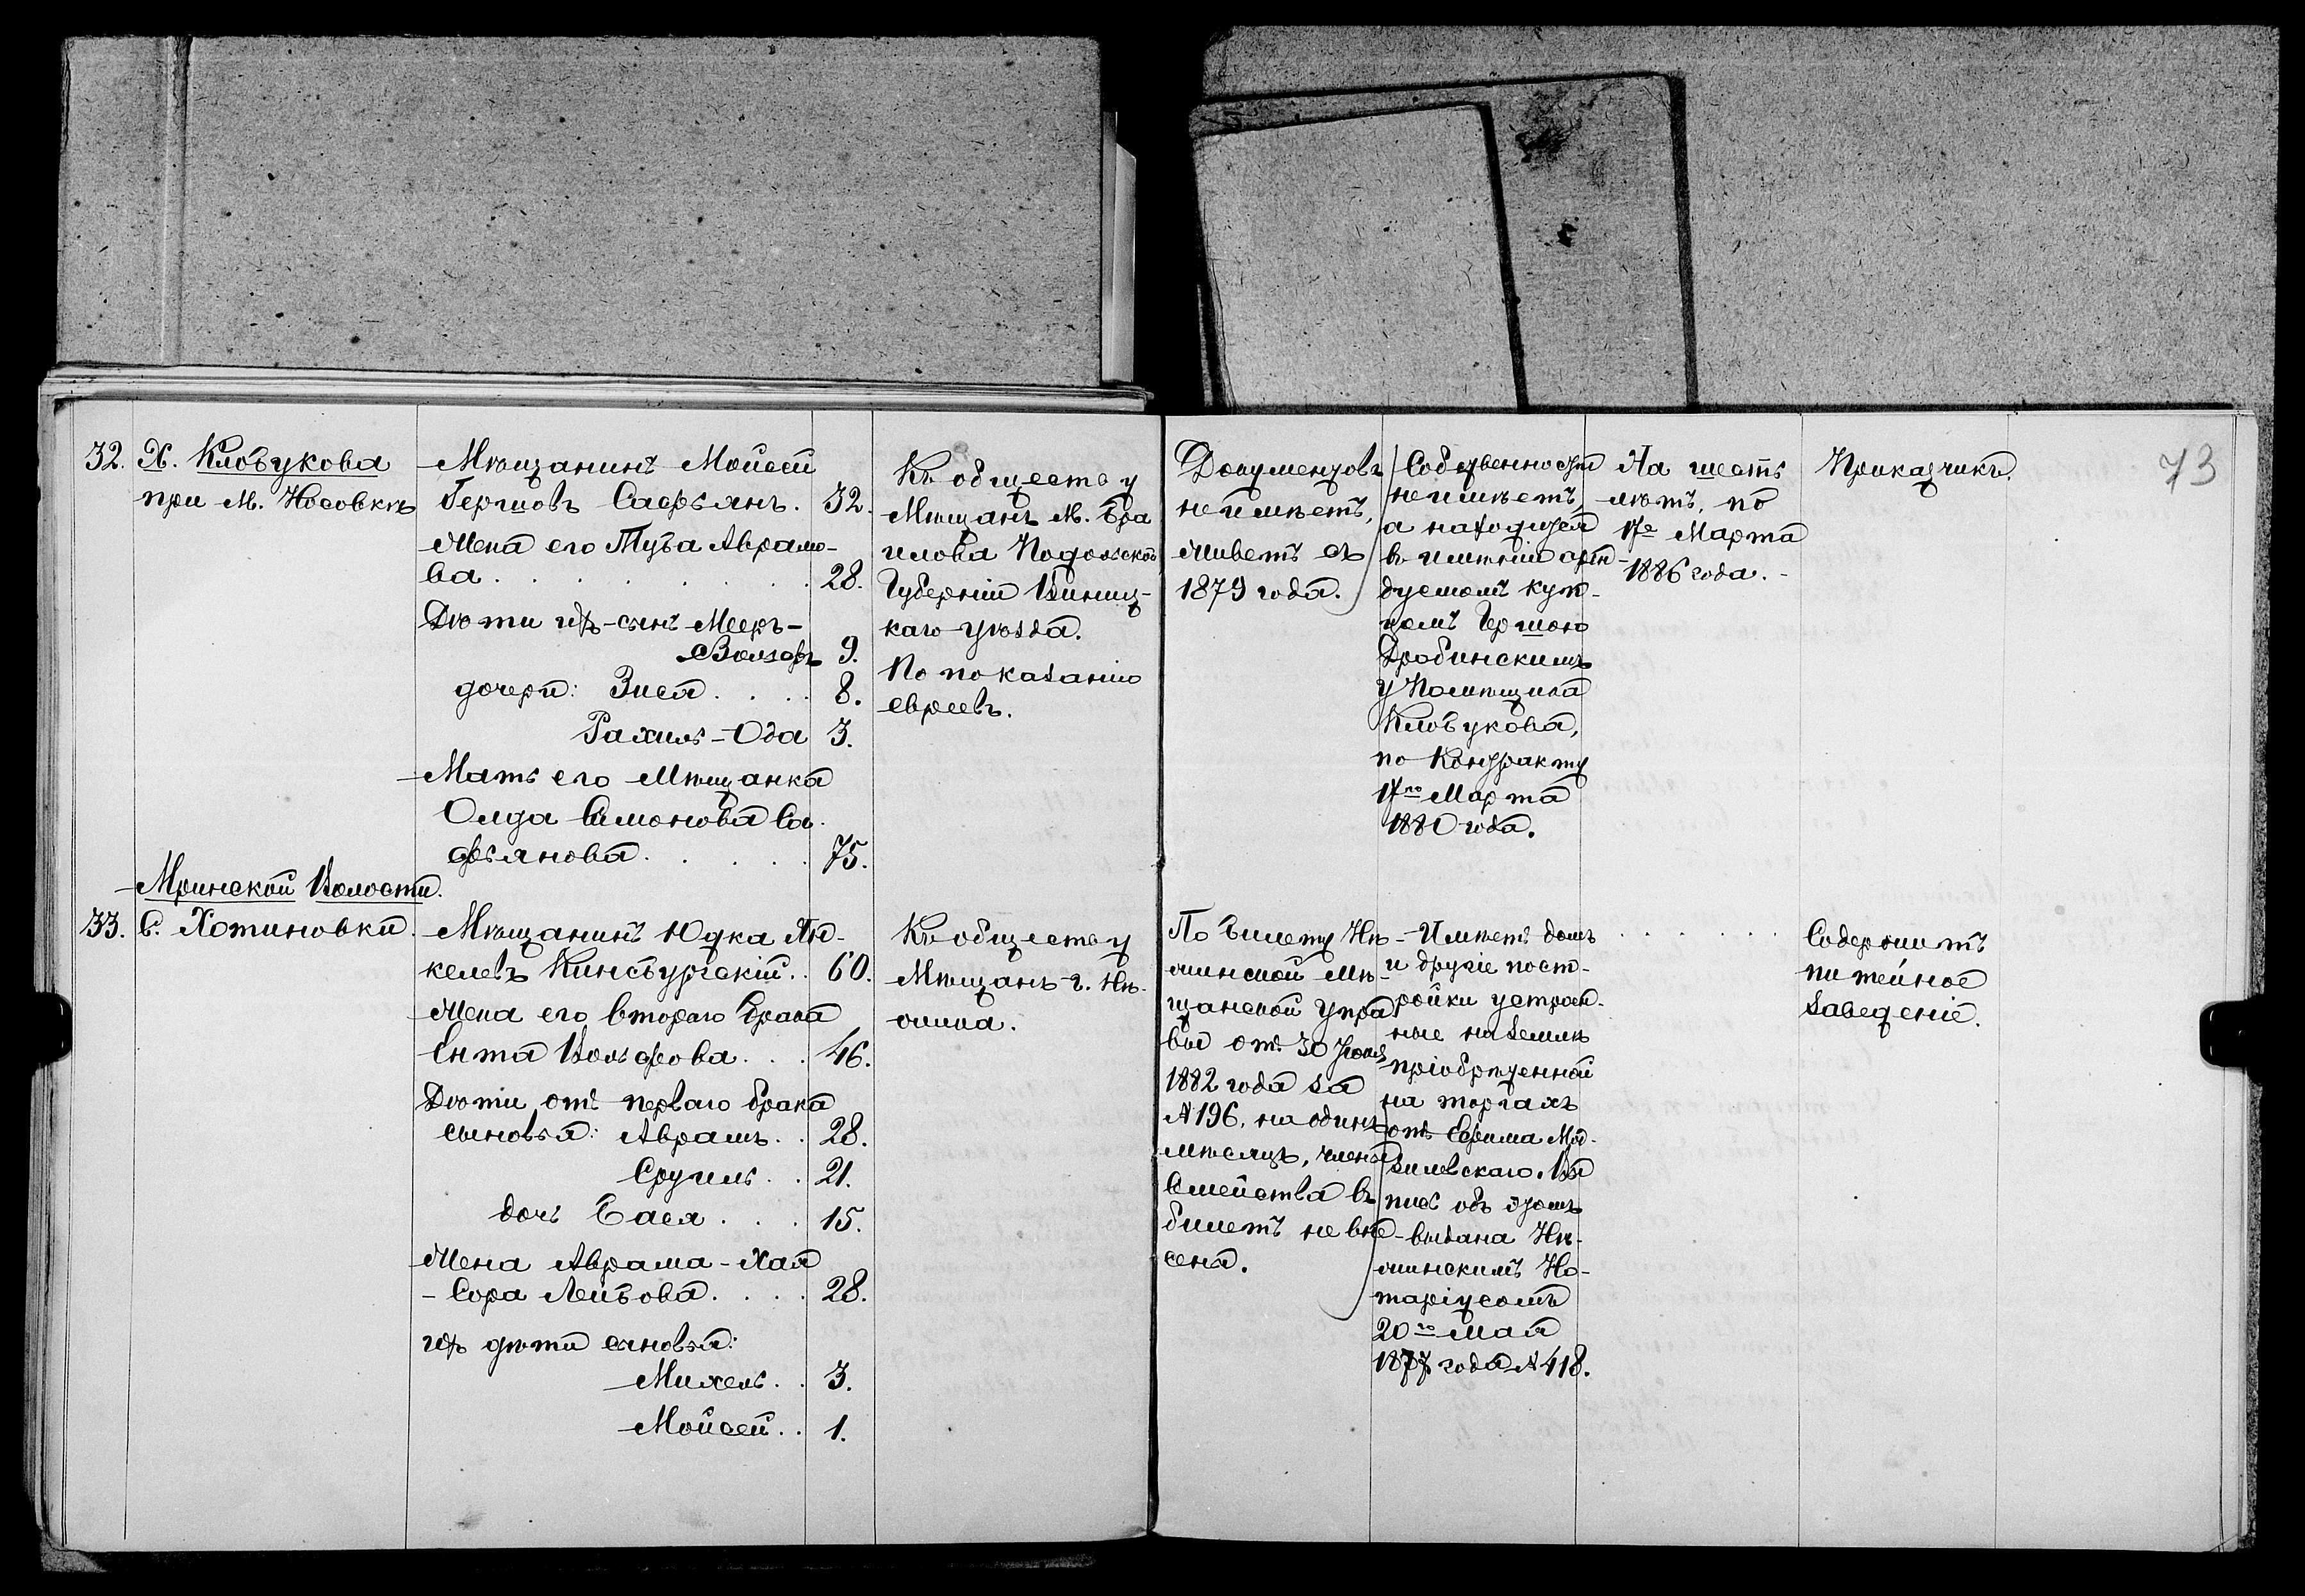 73
32.
Х. Клобукова
при м. Носовкѣ
Мѣщанинъ Мойсей
Гершовъ Сафьянъ. 32.
Жена его Туба Аврамо-
ва . . . . . . . 28.
Дѣти ихъ - сынъ Мееръ-
Вольфъ 9.
дочери: Зися . . . . 8.
Рахиль-Ода 3.
Мать его Мѣщанка
Симонова Са-
фьянова . . . . . 75.
Къ обществу
Мѣщанъ м. Бра
илова Подольской
Губерніи Винниц-
каго уѣзда.
По показанію
евреевъ.
Документовъ
не имѣетъ,
живетъ съ
1879 года.
Собственности
не имѣетъ,
а находится
въ имѣніи арен-
дуемомъ куп-
цомъ Гершою
Драбинскимъ
у Помѣщика
Клобукова,
по Контракту
17го Марта
1880 года.
На шесть
лѣтъ, по
17е Марта
1886 года. -
Приказчикъ.
Мринской Волости.
33.
С. Хотиновка.
Мѣщанинъ Юдка Ян-
келевъ Кинсбургскій . . 60.
Жена его втораго брака
Ента Вольфова . . . 46.
Дѣти отъ перваго брака
сыновья: Аврамъ . . 28.
Сруль . . 21.
дочь Бася . . . 15.
Жена Аврама - Хая
- Сора Лейбова . . . . 28.
ихъ дѣти сыновья:
Михель . . 3.
Мойсей . . 1.
Къ обществу
Мѣщанъ г. Нѣ-
жина.
По билету Нѣ-
жинской Мѣ-
щанской Упра
вы отъ 30 Іюля
1882 года за
№ 196, на одинъ
мѣсяцъ, члены
Семейства въ
билетъ не вне-
сены.
Имѣетъ домъ
и другіе пост-
ройки устроен-
ные на землѣ
пріобрѣтенной
на торгахъ
отъ Ефима Мод-
зилевскаго. Вы
пись объ этомъ
выдана Нѣ-
жинскимъ Но-
таріусомъ
20го Мая
1877 года № 418.
. . . . . . .
Содержитъ
питейное
заведеніе.